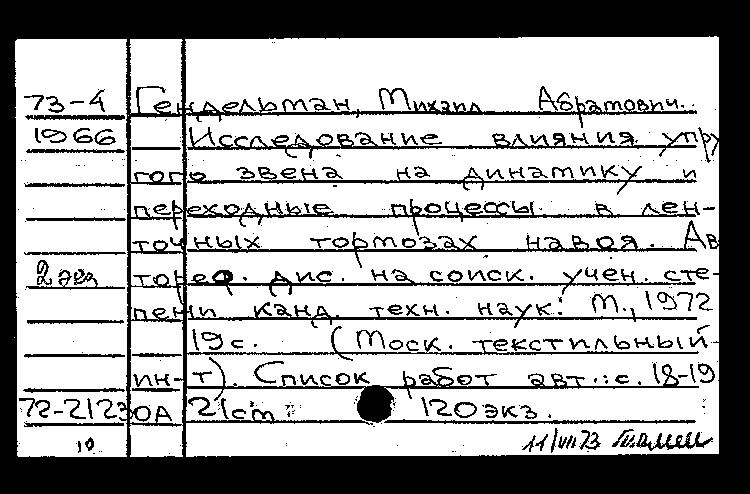 73-4 Гендельман, Михаил Абрамович.
1966 Исследование влияния упру
гого звена на динамику и
переходные процессы в лен-
точных тормозах навоя. Ав
2 экз тореф. дис. на соиск. учен. сте-
пени канд. техн. наук. М., 1972
19 с. (Моск. текстильный
ин-т). Список работ авт.: с. 18-19
72-2123 ОА 21 см 120 экз.
10 11/VII 73